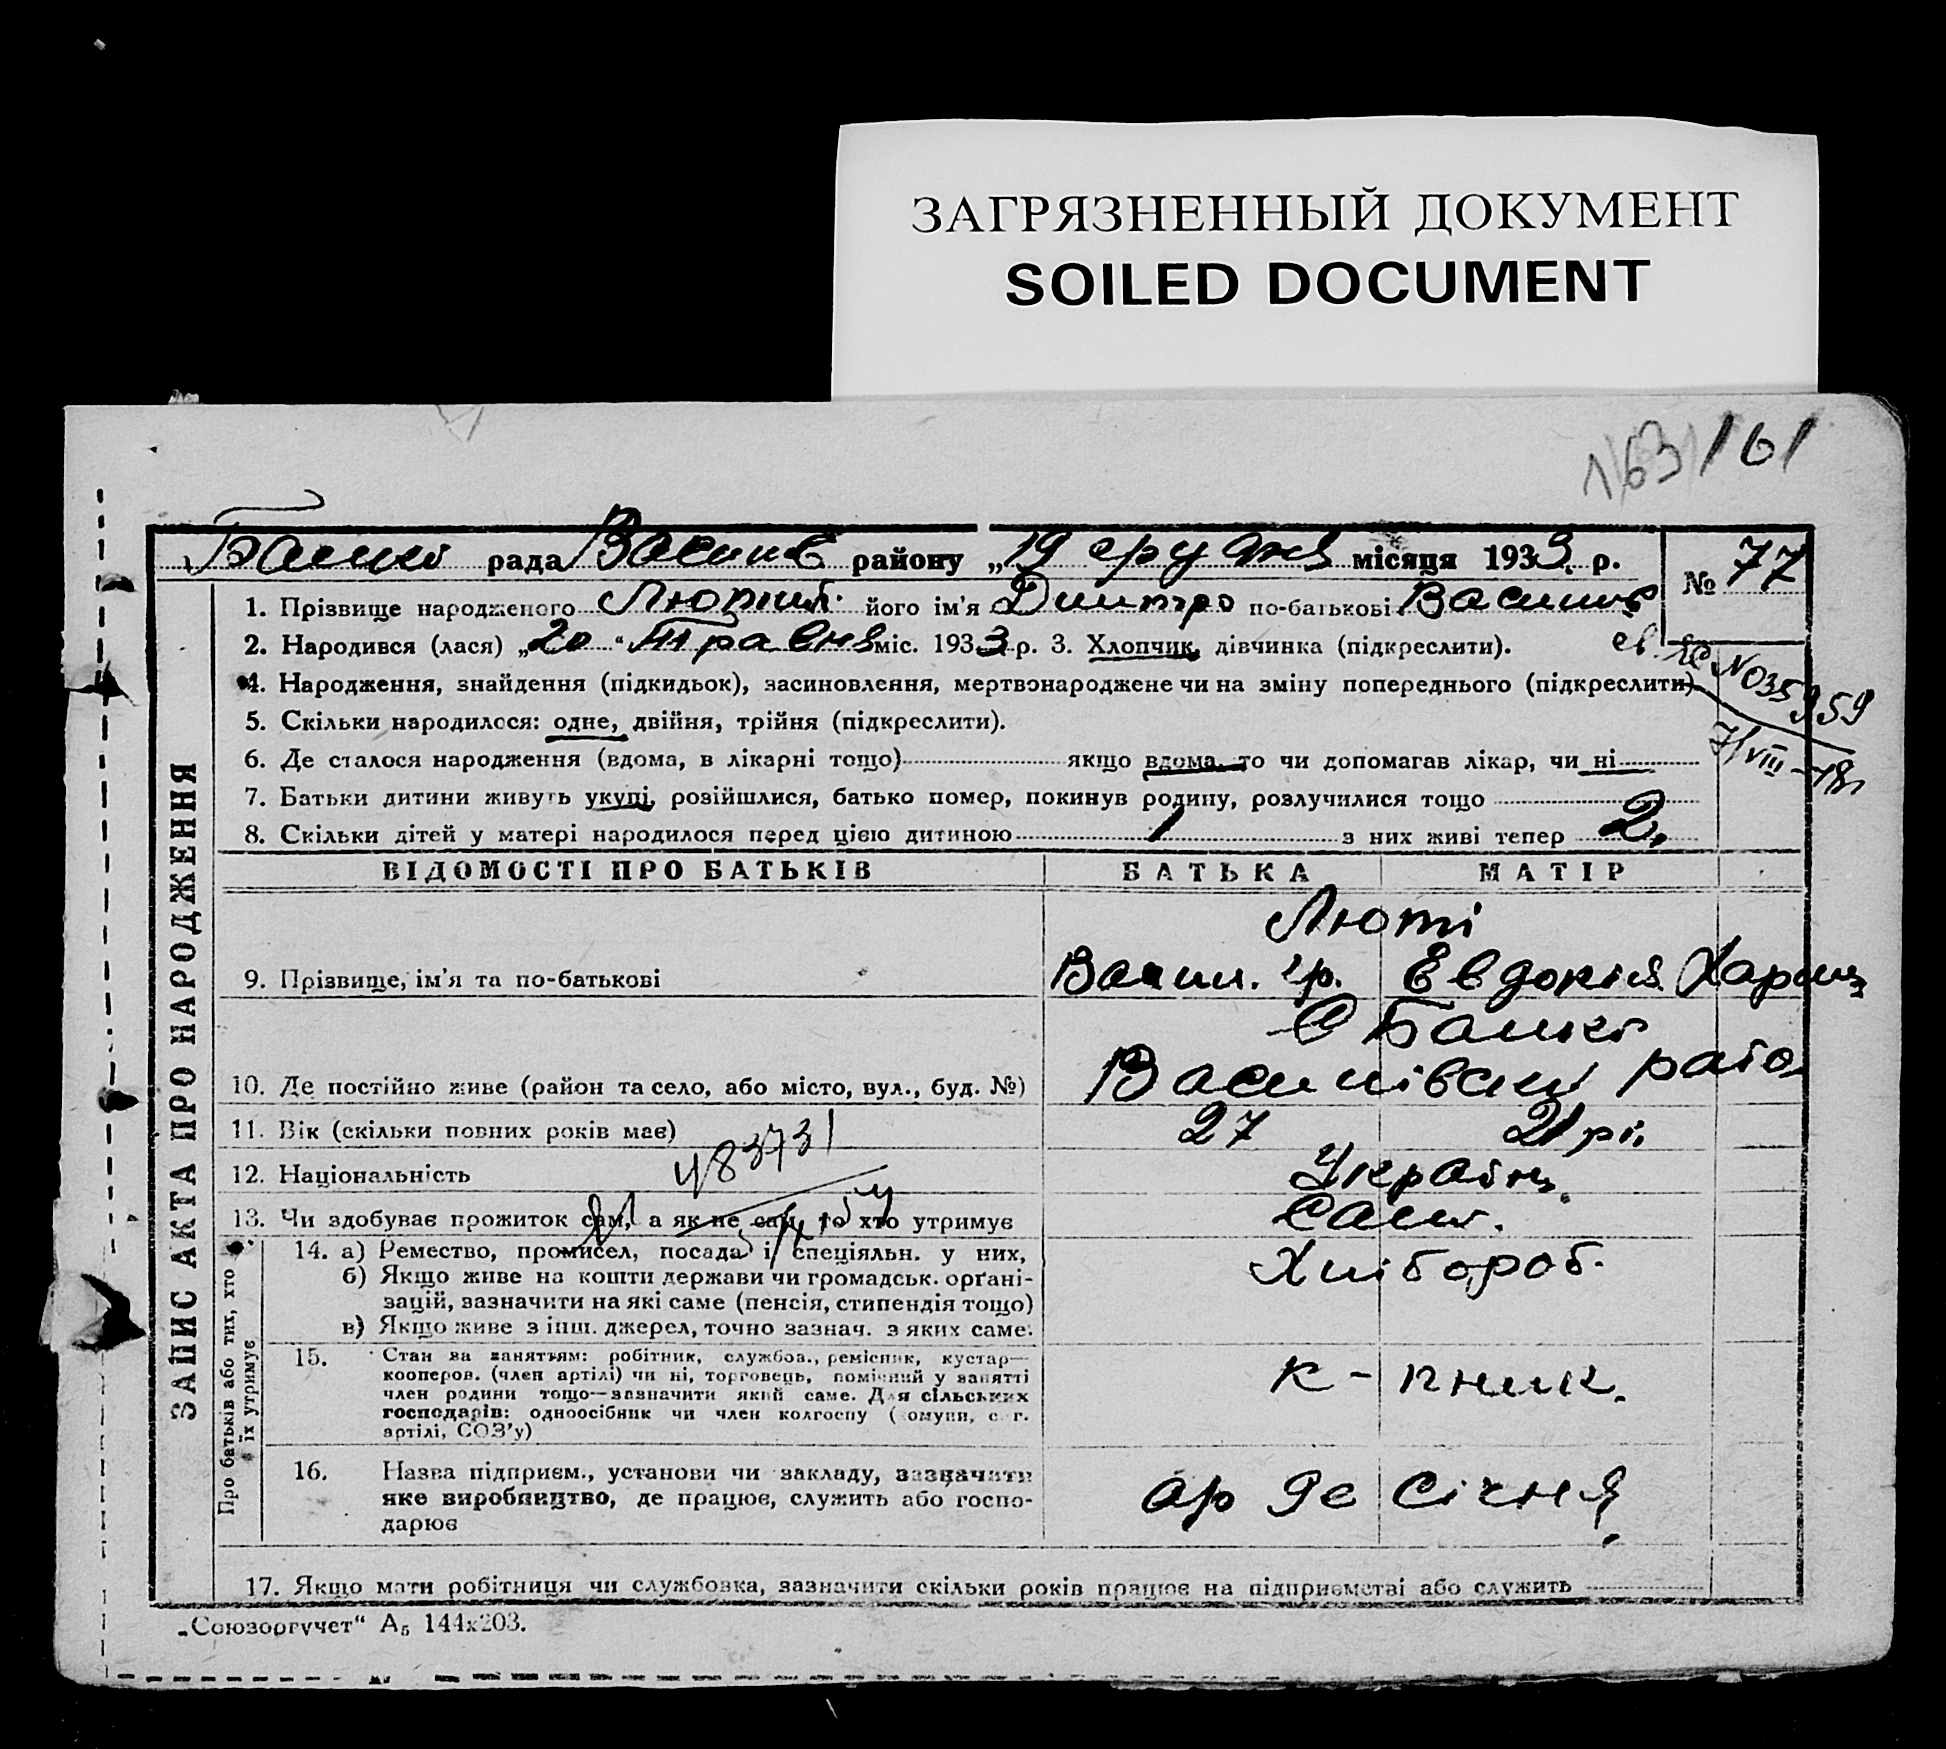 ЗАГРЯЗНЕННЫЙ ДОКУМЕНТ
SOILED DOCUMENT
163/161
рада Васили району „19 грудня місяця 1933. р.
№ 77
1. Прізвище народженого Лютий його ім'я Дмитро по-батькові Василів
2. Народився (лася) „20“ Травня міс. 1933 р. 3. Хлопчик, дівчинка (підкреслити).
4. Народження, знайдення (підкидьок), засиновлення, мертвонароджене чи на зміну попереднього (підкреслити)
№035959
7/VIII-
5. Скільки народилося: одне, двійня, трійня (підкреслити).
6. Де сталося народження (вдома, в лікарні тощо) якщо вдома, то чи допомагав лікар, чи ні
7. Батьки дитини живуть укупі, розійшлися, батько помер, покинув родину, розлучилися тощо
8. Скільки дітей у матері народилося перед цією дитиною 1 з них живі тепер 2.
ЗАПИС АКТА ПРО НАРОДЖЕННЯ
ВІДОМОСТІ ПРО БАТЬКІВ БАТЬКА МАТІР
Люті
9. Прізвище, ім'я та по-батькові Васил. гр. Евдокія
10. Де постійно живе (район та село, або місто, вул., буд. №)
11. Вік (скільки повних років має) 27 21 рі.
483731
12. Національність Україн.
13. Чи здобуває прожиток сам, а як не сам, то хто утримує Сами.
Про батьків або тих, хто їх утримує
14. а) Ремество, промисел, посада і спеціяльн. у них, Хлібороб.
б) Якщо живе на кошти держави чи громадськ. орґані-
зацій, зазначити на які саме (пенсія, стипендія тощо)
в) Якщо живе з інш. джерел, точно зазнач. з яких саме.
15. Стан за заняттям: робітник, службов., ремісник, кустар—
кооперов. (член артілі) чи ні, торговець, помічний у занятті
член родини тощо—зазначити який саме. Для сільських
господарів: одноосібник чи член колгоспу (комуни, с. г.
артілі, СОЗ'у)
к-пник.
16. Назва підприєм., установи чи закладу, зазначити
яке виробництво, де працює, служить або госпо-
дарює
ар 9е Січня
17. Якщо мати робітниця чи службовка, зазначити скільки років працює на підприємстві або служить
„Союзоргучет“ А₅ 144х203.